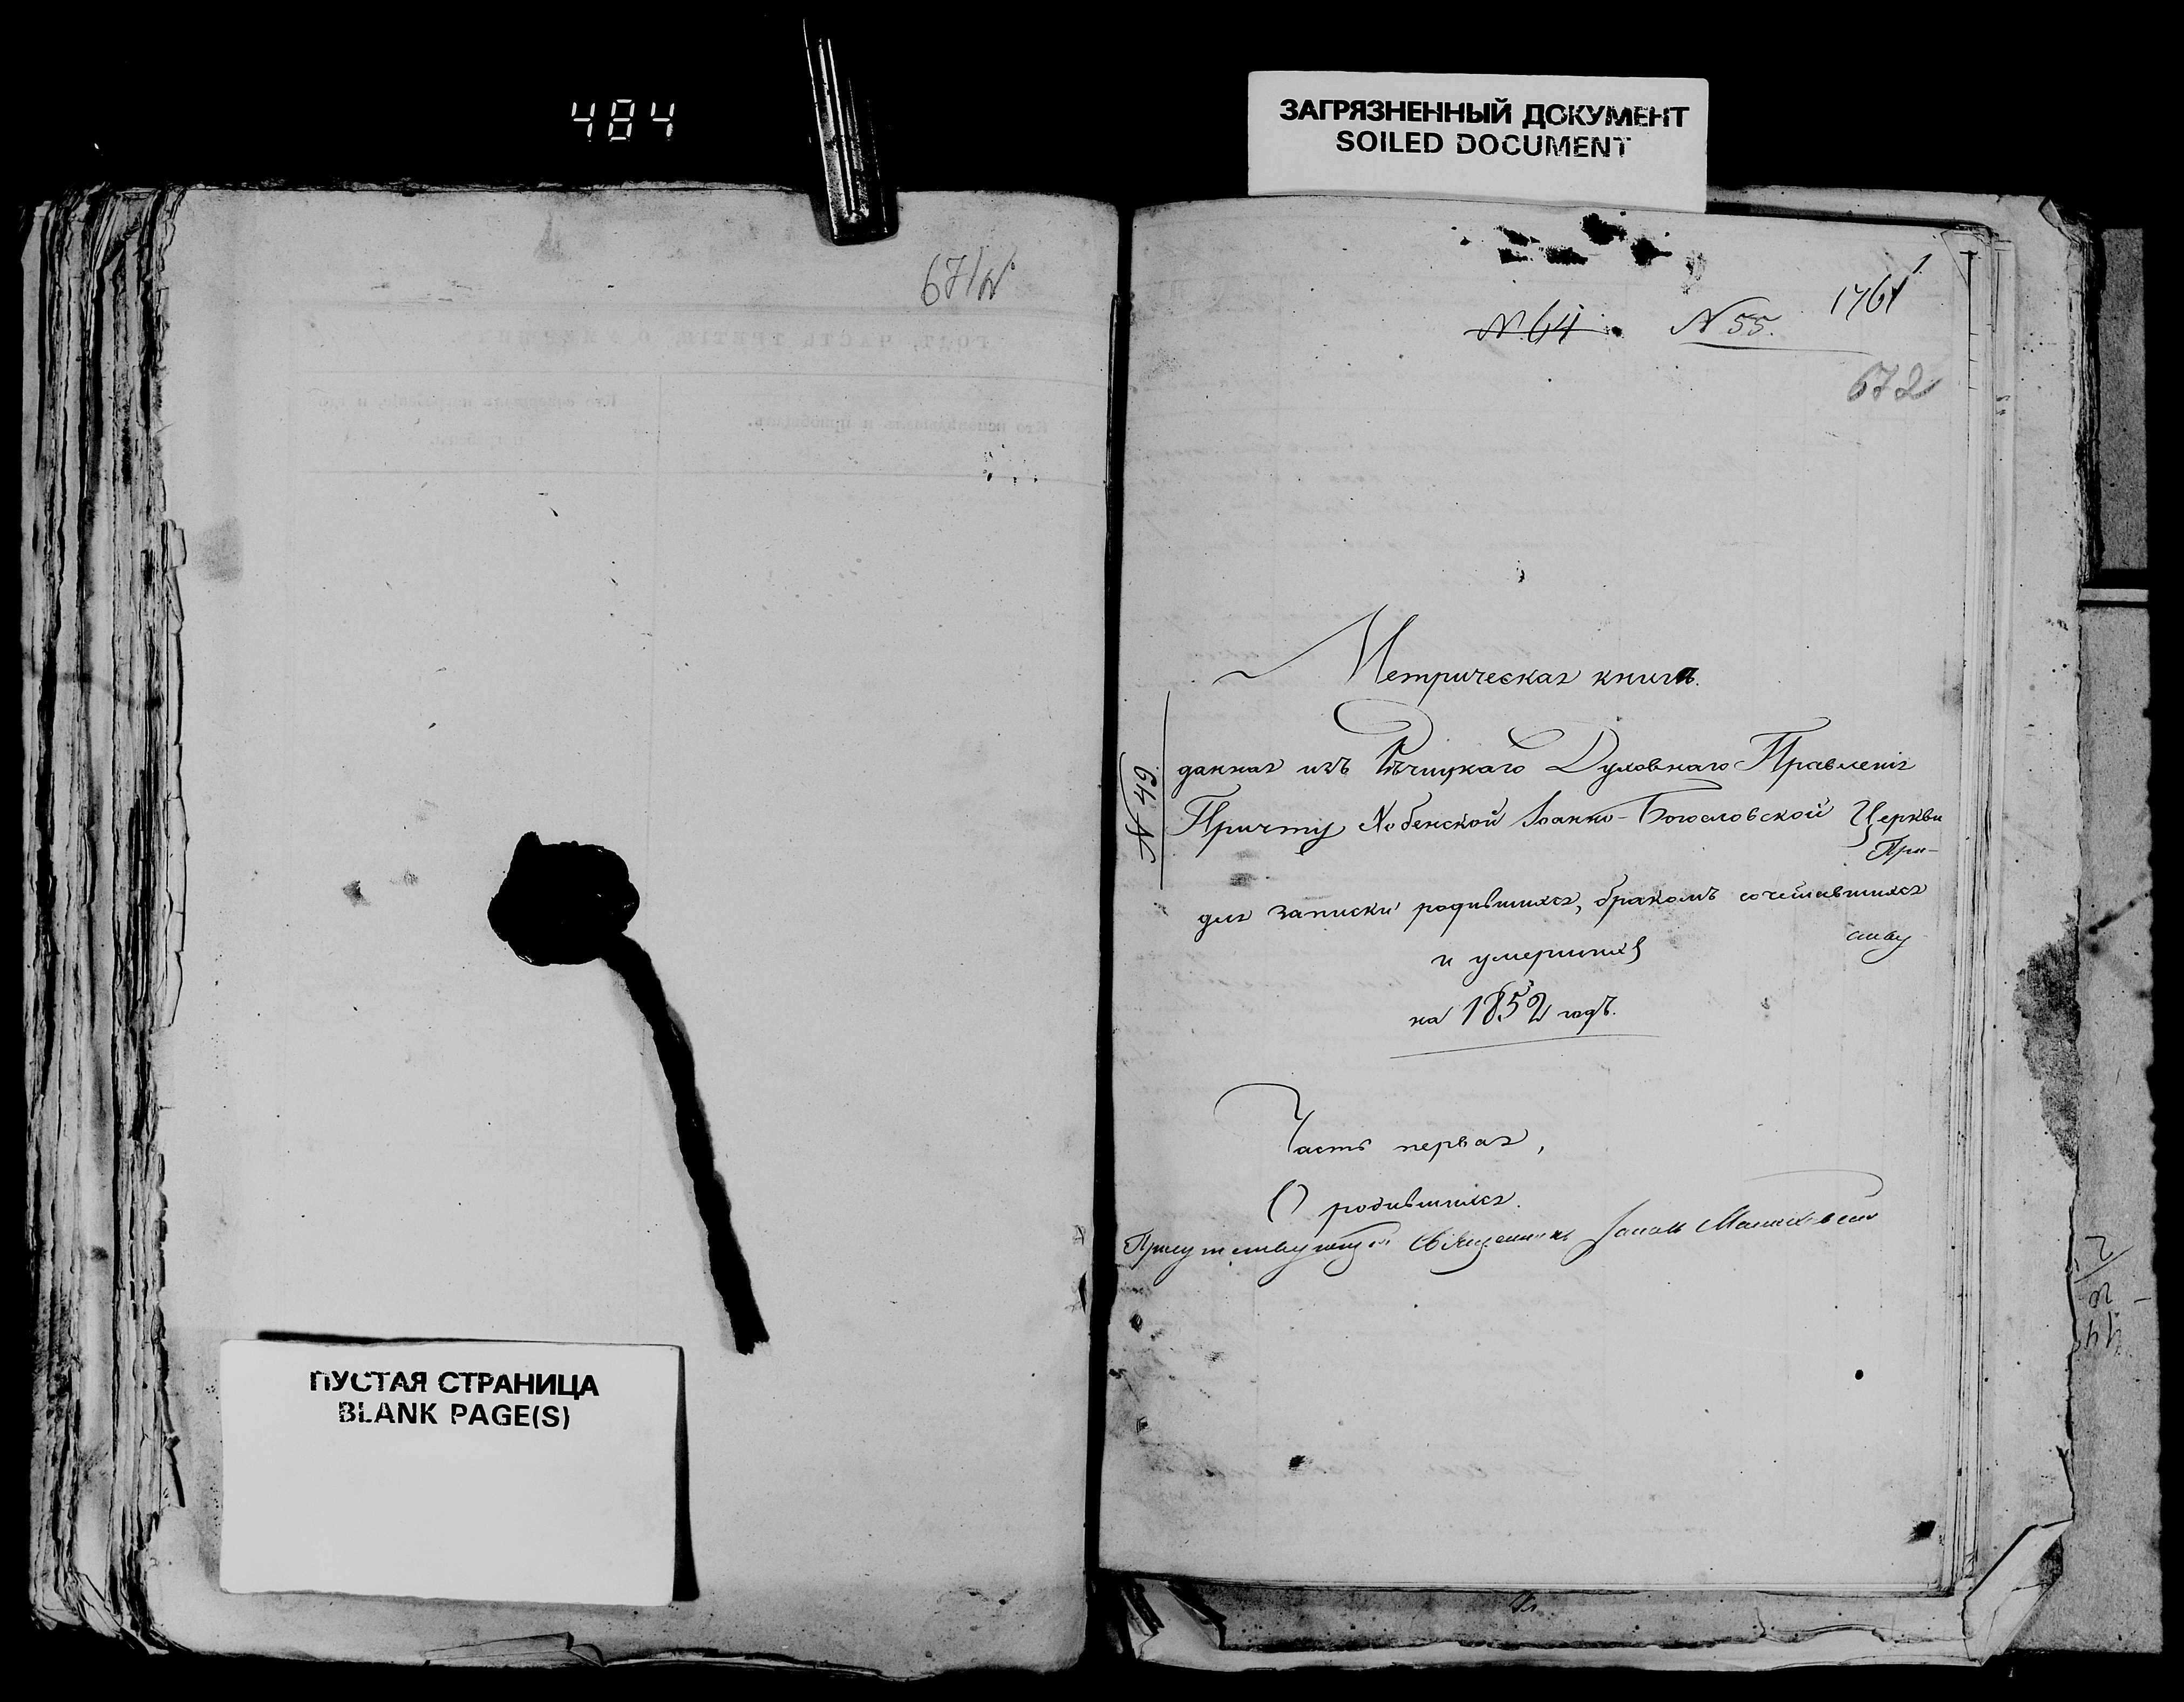 484
ЗАГРЯЗНЕННЫЙ ДОКУМЕНТ
SOILED DOCUMENT
ГОДЪ, ЧАСТЬ ТРЕТІЯ, О УМЕРШИХЪ.
Кто исповѣдывалъ и пріобщалъ.
Кто совершалъ погребеніе, и гдѣ
погребены.
ПУСТАЯ СТРАНИЦА
BLANK PAGE(S)
N. 64 N 55.
672
N 49
Метрическая книга.
данная изъ Рѣчицкаго Духовнаго Правленія
Причту Хобенской Іоанно-Богословской Церкви
При-
для записки родившихся, бракомъ сочетавшихся
сству
и умершихъ
на 1852 годъ.
Часть первая,
О родившихся.
Присутствующій Священникъ